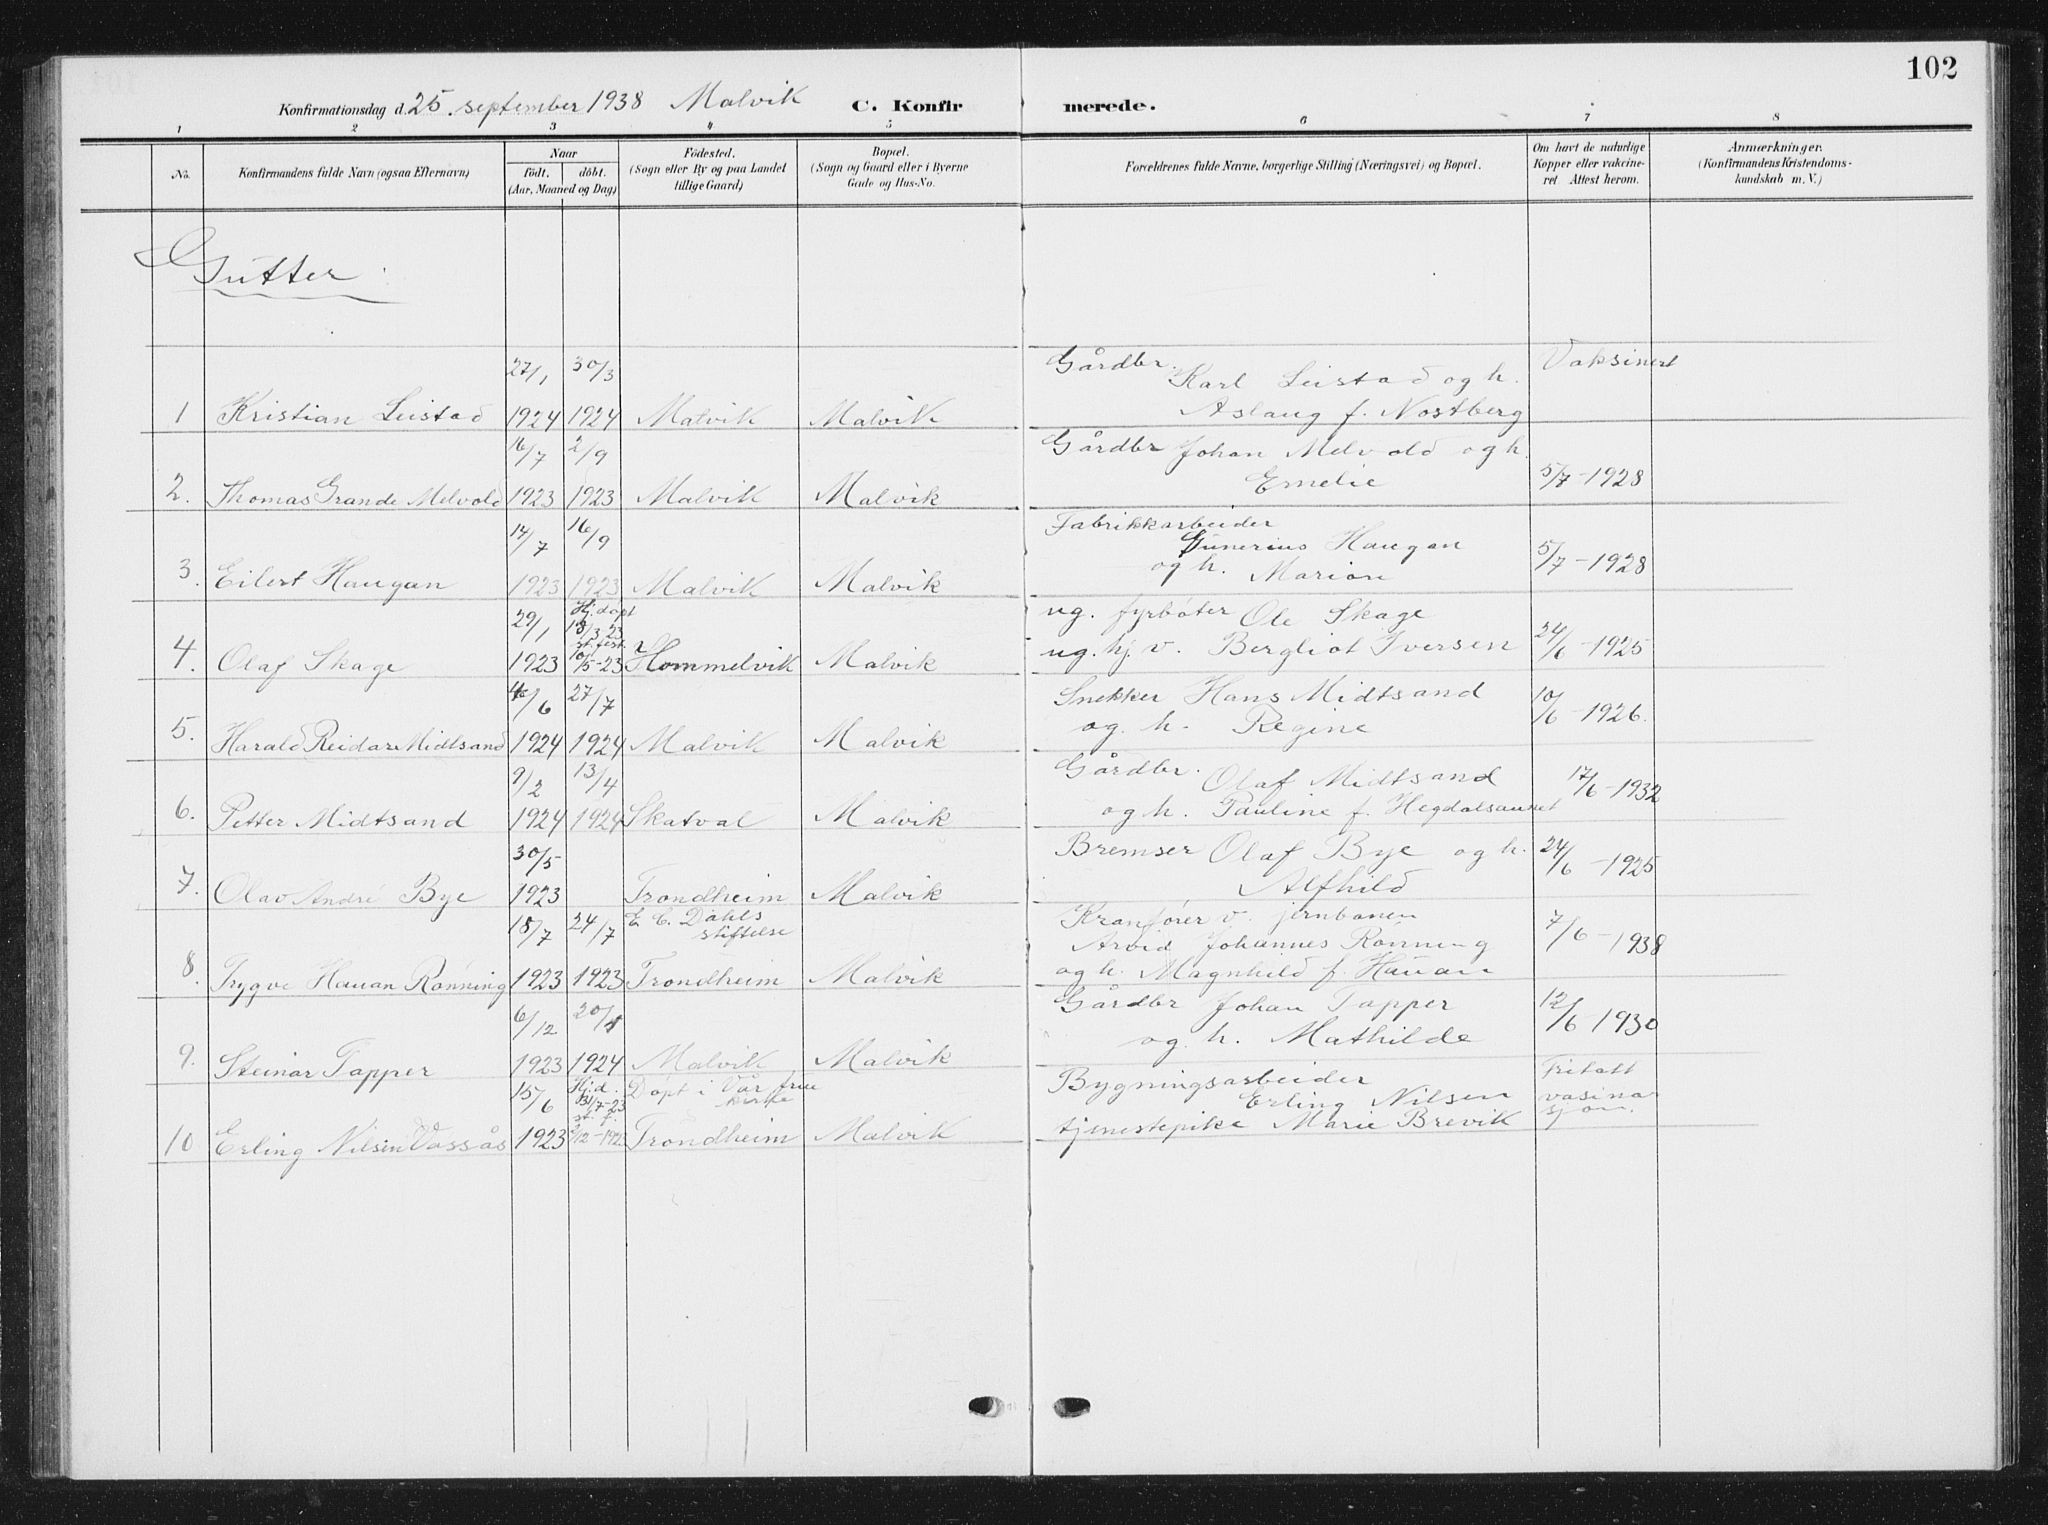 102
Konfirmationsdag d. 25. september 1938 Malvik C. Konfirmerede.
1 2 3 4 5 6 7 8
No.
Konfirmandens fulde Navn (ogsaa Efternavn)
Naar
født. døbt.
(Aar, Maaned og Dag)
Fødested.
(Sogn eller By og paa Landet
tillige Gaard)
Bopæl.
(Sogn og Gaard eller i Byerne
Gade og Hus-No.
Forældrenes fulde Navne, borgerlige Stilling (Næringsvei) og Bopæl.
Om havt de naturlige
Kopper eller vakcine-
ret Attest herom.
Anmærkninger.
(Konfirmandens Kristendoms-
kundskab m. V.)
Gutter:
27/1 30/3 Gårdbr. Karl Leistad og h. Vaksinert
1 Kristian Leistad 1924 1924 Malvik Malvik Aslaug f. Nostberg
16/7 2/9 Gårdbr Johan Melvold og h.
2. Thomas Grande Melvold 1923 1923 Malvik Malvik Emelie 5/7-1928
14/7 16/9 Fabrikkarbeider
Gunerius Haugan
3. Eilert Haugan 1923 1923 Malvik Malvik og h. Marion 5/7-1928
29/1 Hj. døpt 18/3 23 ug. fyrbøter Ole Skage
st. fest.
4. Olaf Skage 1923 10/5-23 Hommelvik Malvik ug. hj. v. Bergliot Iversen 24/6-1925
4/6 27/7 Snekker Hans Midtsand
5. Harald Reidar Midtsand 1924 1924 Malvik Malvik og h. Regine 10/6-1926.
9/2 13/4 Gårdbr. Olaf Midtsand
6. Petter Midtsand 1924 1924 Skatval Malvik og h. Pauline f. Hegdalsaunet 17/6-1932
30/5 Bremser Olaf Bye og h.
7. Olav André Bye 1923 Trondheim Malvik Alfhild 24/6-1925
18/7 24/7 E. C. Dahls stiftelse Kranfører v. jernbanen
Arvid Johannes Rønning
8. Trygve Hauan Rønning 1923 1923 Trondheim Malvik og h. Magnhild f. Hauan 7/6-1938
6/12 20/4 Gårdbr Johan Tapper
9. Steinar Tapper 1923 1924 Malvik Malvik og h. Mathilde 12/6-1930
15/6 Hj.d. 31/7-23 Døpt i Vår frue kirke Bygningsarbeider Fritatt
st. f. Erling Nilsen vasina
10 Erling Nilsen Vassås 1923 2/12-1923 Trondheim Malvik tjenestepike Marie Brevik sjon.